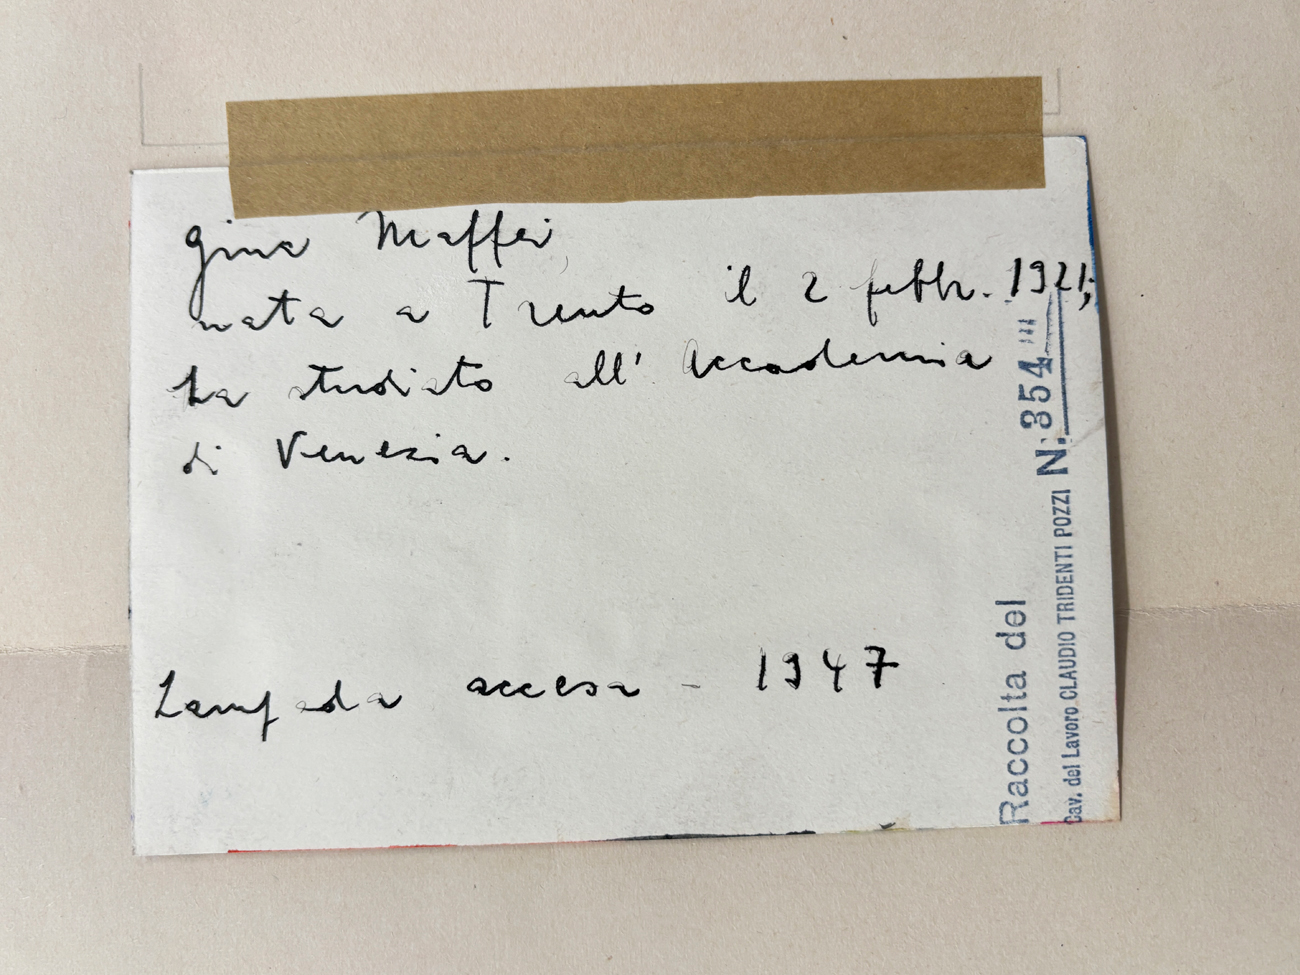 Gina Maffei
nata a Trento il 2 febbr. 1921;
ha studiato all' Accademia
di Venezia.
Lampada accesa - 1947
Raccolta del
Cav. del Lavoro CLAUDIO TRIDENTI POZZI N. 354